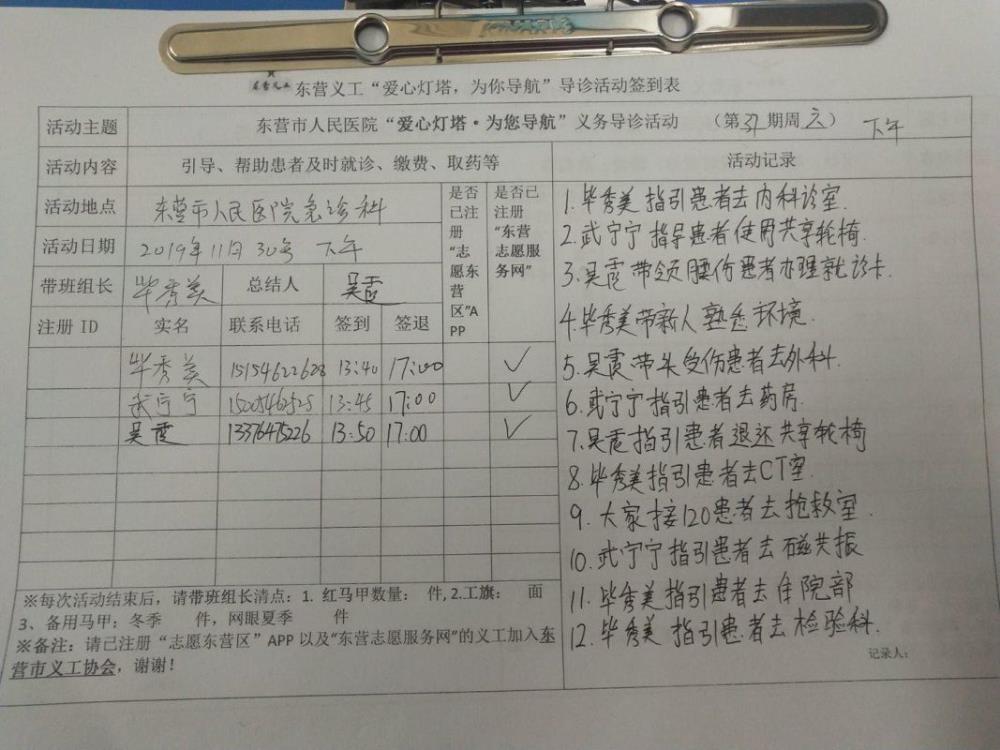 东营义工 东营义工“爱心灯塔，为你导航”导诊活动签到表
活动主题 东营市人民医院“爱心灯塔·为您导航”义务导诊活动 （第 期周六） 下午
活动内容 引导、帮助患者及时就诊、缴费、取药等 活动记录
活动地点 东营市人民医院急诊科
是否已注册“志愿东营区”APP
是否已注册“东营志愿服务网”
活动日期 2019年11月30号 下午
带班组长 毕秀美 总结人 吴霞
注册 ID 实名 联系电话 签到 签退
毕秀美 15154622628 13:40 17:00 ✓
武宁宁 15005462525 13:45 17:00 ✓
吴霞 13376475226 13:50 17:00 ✓
1.毕秀美指引患者去内科诊室.
2.武宁宁指导患者使用共享轮椅.
3.吴霞带领腰伤患者办理就诊卡.
4.毕秀美带新人熟悉环境.
5.吴霞带头受伤患者去外科.
6.武宁宁指引患者去药房.
7.吴霞指引患者退还共享轮椅
8.毕秀美指引患者去CT室.
9.大家接120患者去抢救室.
10.武宁宁指引患者去磁共振
11.毕秀美指引患者去住院部
12.毕秀美指引患者去检验科.
记录人：
※每次活动结束后，请带班组长清点：1. 红马甲数量： 件,2.工旗： 面
3、备用马甲：冬季 件，网眼夏季 件
※备注：请已注册“志愿东营区”APP 以及“东营志愿服务网”的义工加入东
营市义工协会，谢谢！